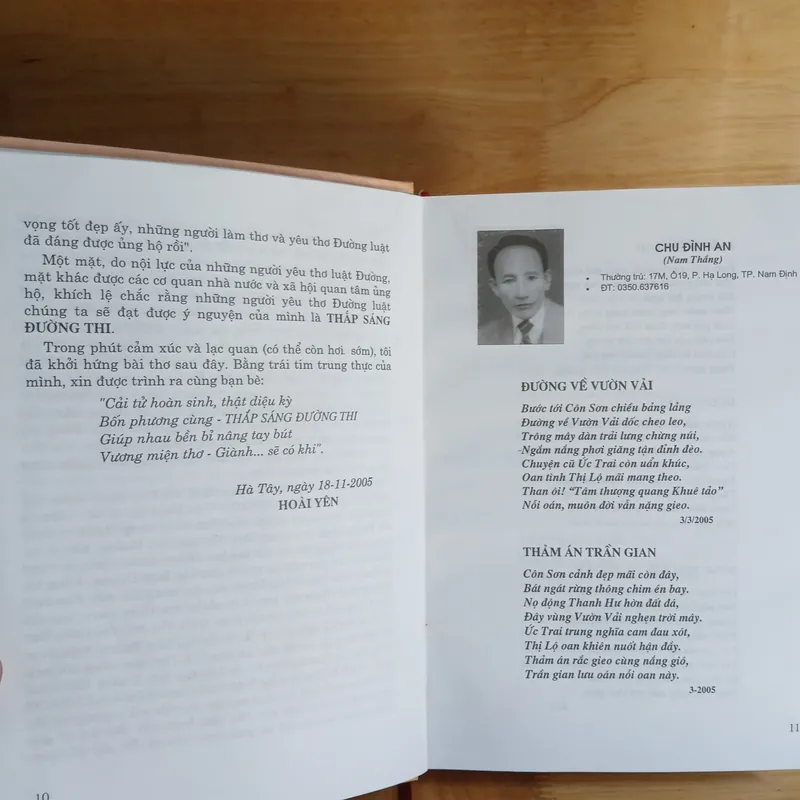 vọng tốt đẹp ấy, những người làm thơ và yêu thơ Đường luật
đã đáng được ủng hộ rồi".
Một mặt, do nội lực của những người yêu thơ luật Đường,
mặt khác được các cơ quan nhà nước và xã hội quan tâm ủng
hộ, khích lệ chắc rằng những người yêu thơ Đường luật
chúng ta sẽ đạt được ý nguyện của mình là THẮP SÁNG
ĐƯỜNG THI.
Trong phút cảm xúc và lạc quan (có thể còn hơi sớm), tôi
đã khởi hứng bài thơ sau đây. Bằng trái tim trung thực của
mình, xin được trình ra cùng bạn bè:
"Cải tử hoàn sinh, thật diệu kỳ
Bốn phương cùng - THẮP SÁNG ĐƯỜNG THI
Giúp nhau bền bỉ nâng tay bút
Vương miện thơ - Giành... sẽ có khi".
Hà Tây, ngày 18-11-2005
HOÀI YÊN
10
CHU ĐÌNH AN
(Nam Thắng)
• Thường trú: 17M, Ô19, P. Hạ Long, TP. Nam Định
• ĐT: 0350.637616
ĐƯỜNG VỀ VƯỜN VẢI
Bước tới Côn Sơn chiều bảng lảng
Đường về Vườn Vải dốc cheo leo,
Trông mây dàn trải lưng chừng núi,
-Ngắm nắng phơi giăng tận đỉnh đèo.
Chuyện cũ Ức Trai còn uẩn khúc,
Oan tình Thị Lộ mãi mang theo.
Than ôi! "Tâm thượng quang Khuê tảo"
Nỗi oán, muôn đời vẫn nặng gieo.
3/3/2005
THẢM ÁN TRẦN GIAN
Côn Sơn cảnh đẹp mãi còn đây,
Bát ngát rừng thông chim én bay.
Nọ động Thanh Hư hờn đất đá,
Đây vùng Vườn Vải nghẹn trời mây.
Ức Trai trung nghĩa cam đau xót,
Thị Lộ oan khiên nuốt hận đầy.
Thảm án rắc gieo cùng nắng gió,
Trần gian lưu oán nỗi oan này.
3-2005
11